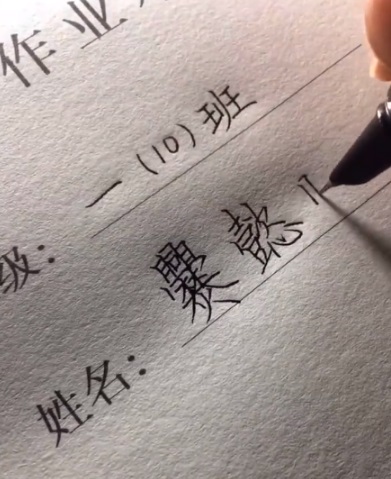 作业
级：一（10）班
姓名：爨懿